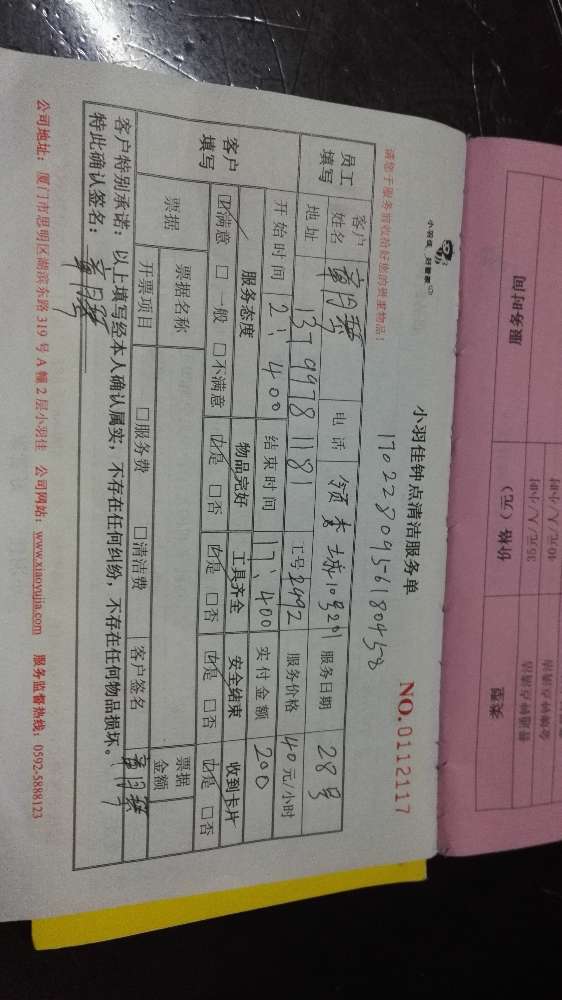 小羽佳 好管家
小羽佳钟点清洁服务单
NO.0112117
请您于服务前收拾好您的贵重物品！
1702280956180458
员工填写
客户姓名 电话 服务日期 28号
地址 13799781181 工号 2492 服务价格 40元/小时
开始时间 2:400 结束时间 17:400 实付金额 200
客户填写
服务态度 物品完好 工具齐全 安全结束 收到卡片
☑满意 □一般 □不满意 ☑是 □否 ☑是 □否 ☑是 □否 ☑是 □否
票据
票据名称 □服务费 □清洁费 客户签名 票据金额
开票项目
客户特别承诺：以上填写经本人确认属实，不存在任何纠纷，不存在任何物品损坏。
特此确认签名：
公司地址：厦门市思明区湖滨东路319号A幢2层小羽佳 公司网站：www.xiaoyujia.com 服务监督热线：0592-5888123
类型 价格（元） 服务时间
普通钟点清洁 35元/人/小时
40元/人/小时